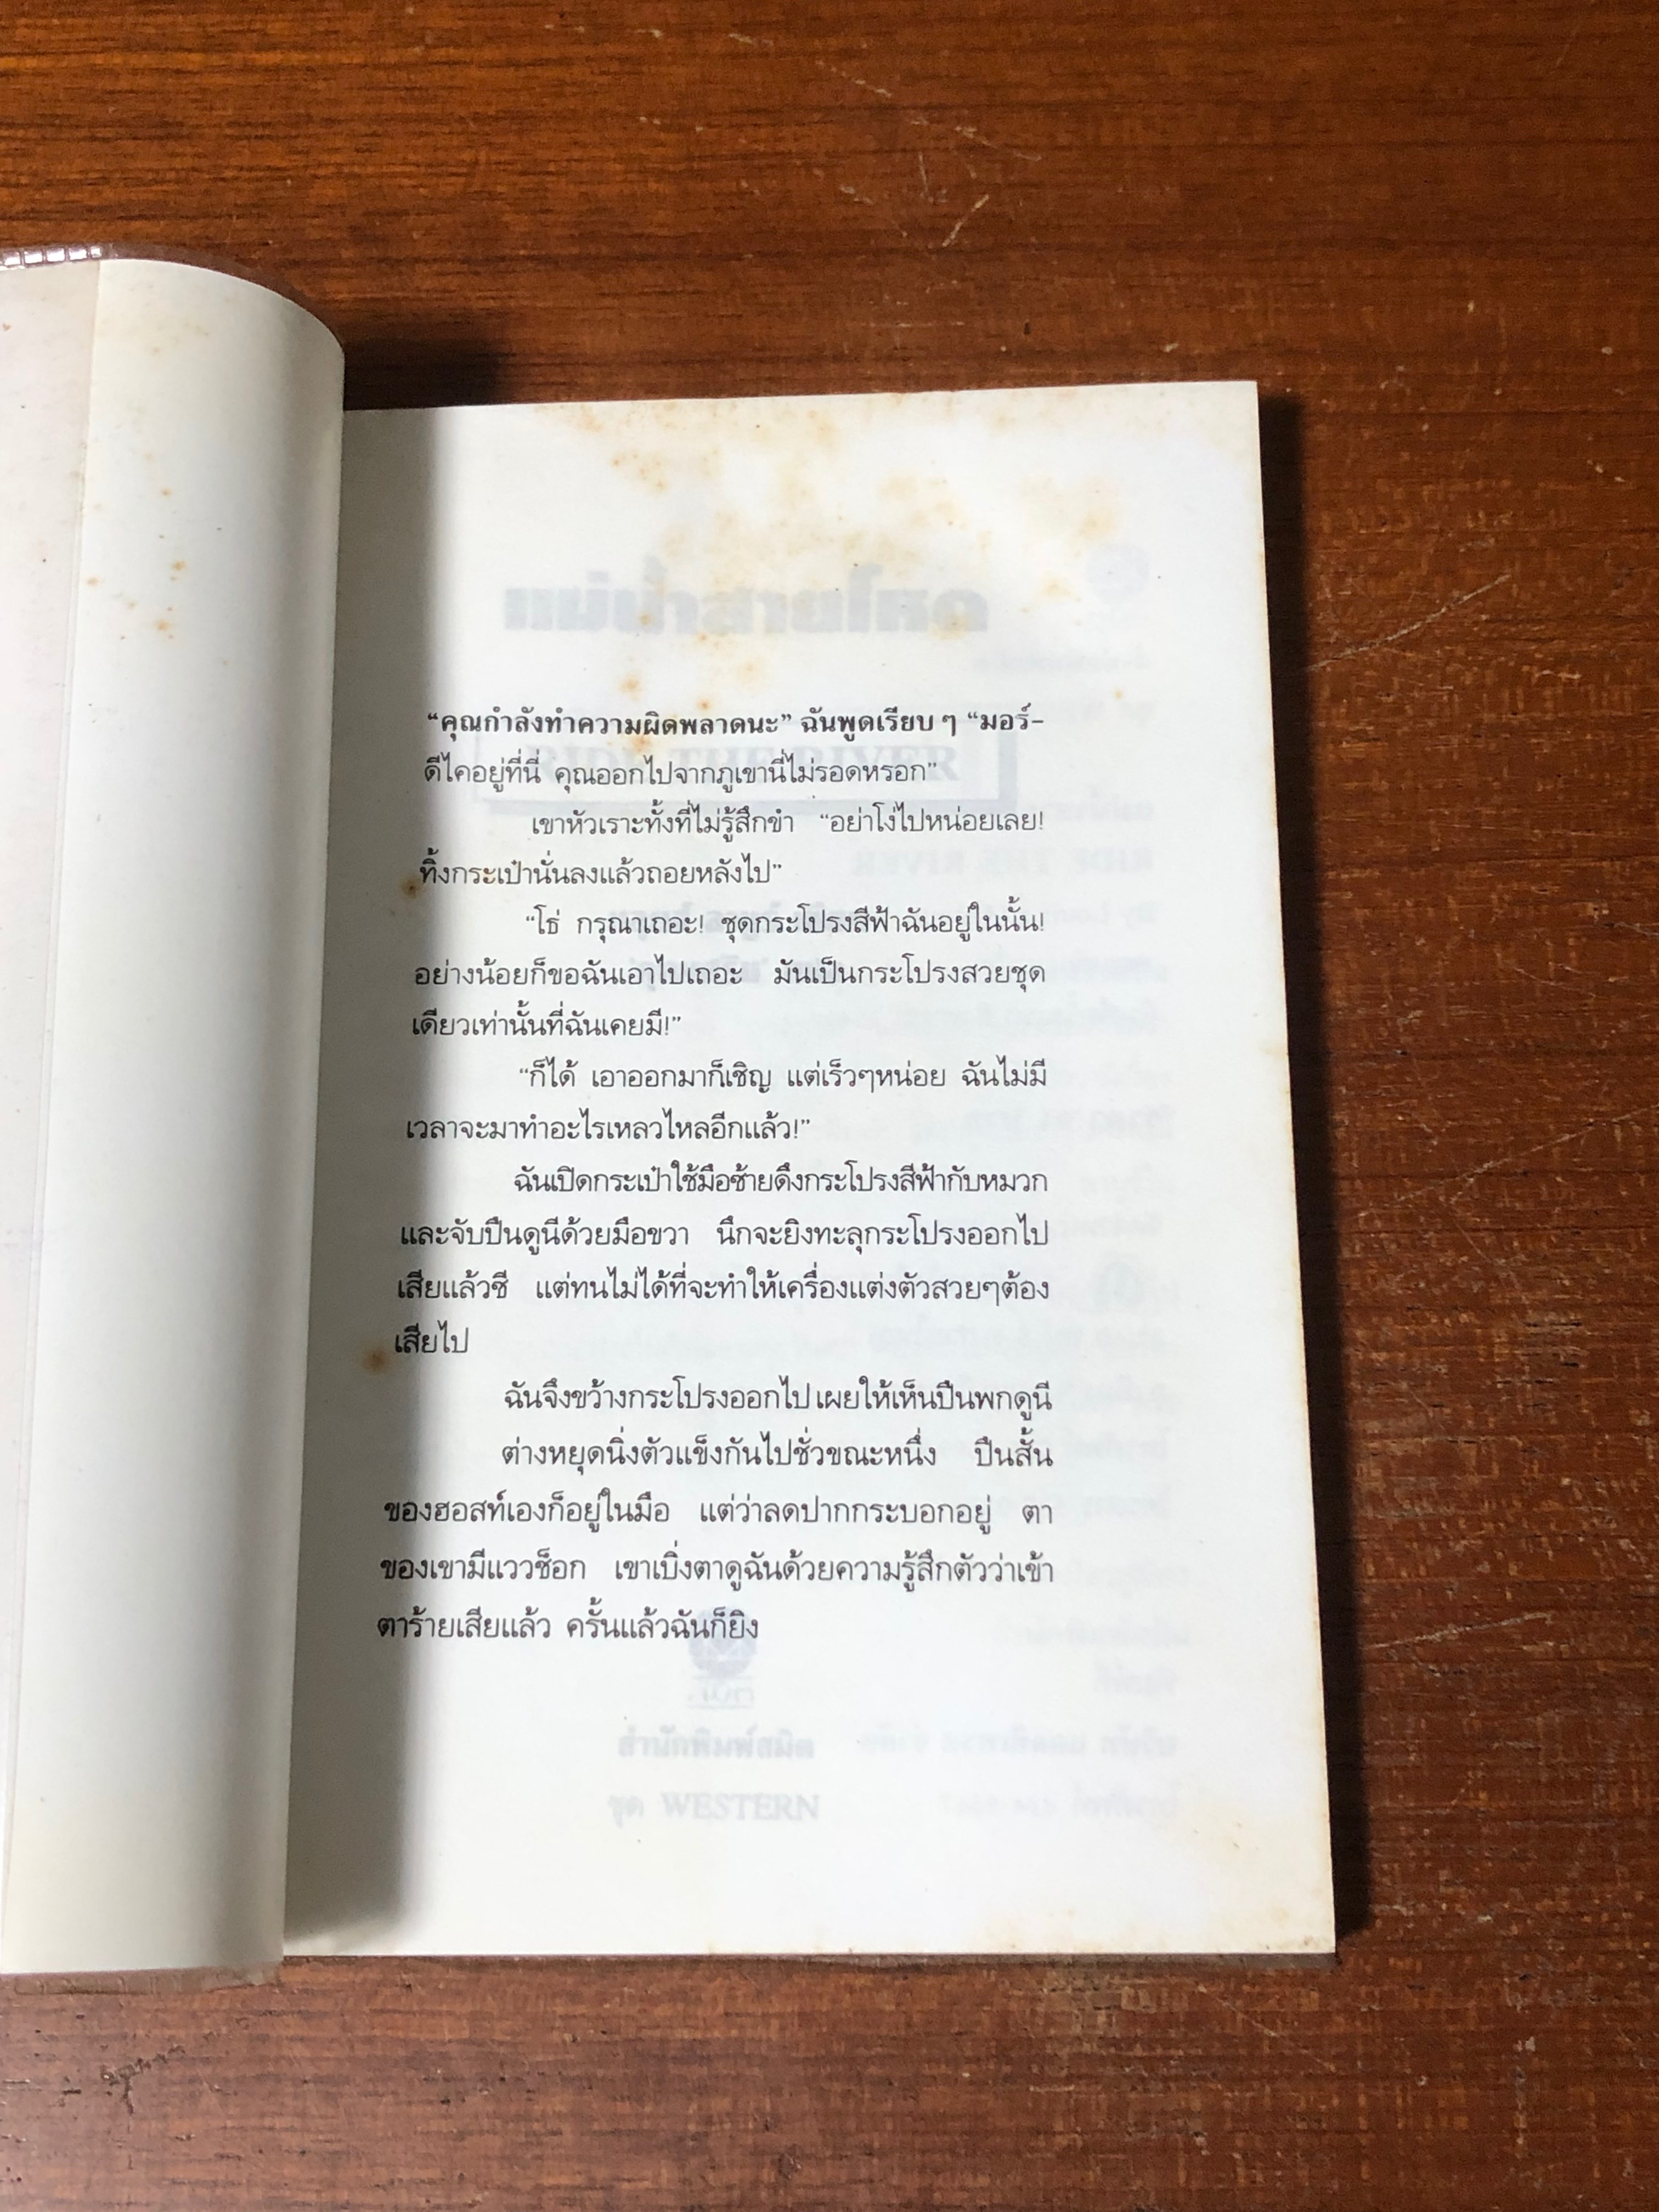 “คุณกำลังทำความผิดพลาดนะ” ฉันพูดเรียบ ๆ “มอร์-
ดีไคอยู่ที่นี่ คุณออกไปจากภูเขานี่ไม่รอดหรอก”
เขาหัวเราะทั้งที่ไม่รู้สึกขำ “อย่าโง่ไปหน่อยเลย!
ทิ้งกระเป๋านั่นลงแล้วถอยหลังไป”
“โธ่ กรุณาเถอะ! ชุดกระโปรงสีฟ้าฉันอยู่ในนั้น!
อย่างน้อยก็ขอฉันเอาไปเถอะ มันเป็นกระโปรงสวยชุด
เดียวเท่านั้นที่ฉันเคยมี!”
“ก็ได้ เอาออกมาก็เชิญ แต่เร็วๆหน่อย ฉันไม่มี
เวลาจะมาทำอะไรเหลวไหลอีกแล้ว!”
ฉันเปิดกระเป๋าใช้มือซ้ายดึงกระโปรงสีฟ้ากับหมวก
และจับปืนดูนีด้วยมือขวา นึกจะยิงทะลุกระโปรงออกไป
เสียแล้วซี แต่ทนไม่ได้ที่จะทำให้เครื่องแต่งตัวสวยๆต้อง
เสียไป
ฉันจึงขว้างกระโปรงออกไป เผยให้เห็นปืนพกดูนี
ต่างหยุดนิ่งตัวแข็งกันไปชั่วขณะหนึ่ง ปืนสั้น
ของฮอสท์เองก็อยู่ในมือ แต่ว่าลดปากกระบอกอยู่ ตา
ของเขามีแววช็อก เขาเบิ่งตาดูฉันด้วยความรู้สึกตัวว่าเข้า
ตาร้ายเสียแล้ว ครั้นแล้วฉันก็ยิง
สำนักพิมพ์สมิต
ชุด WESTERN
RIDE THE RIVER